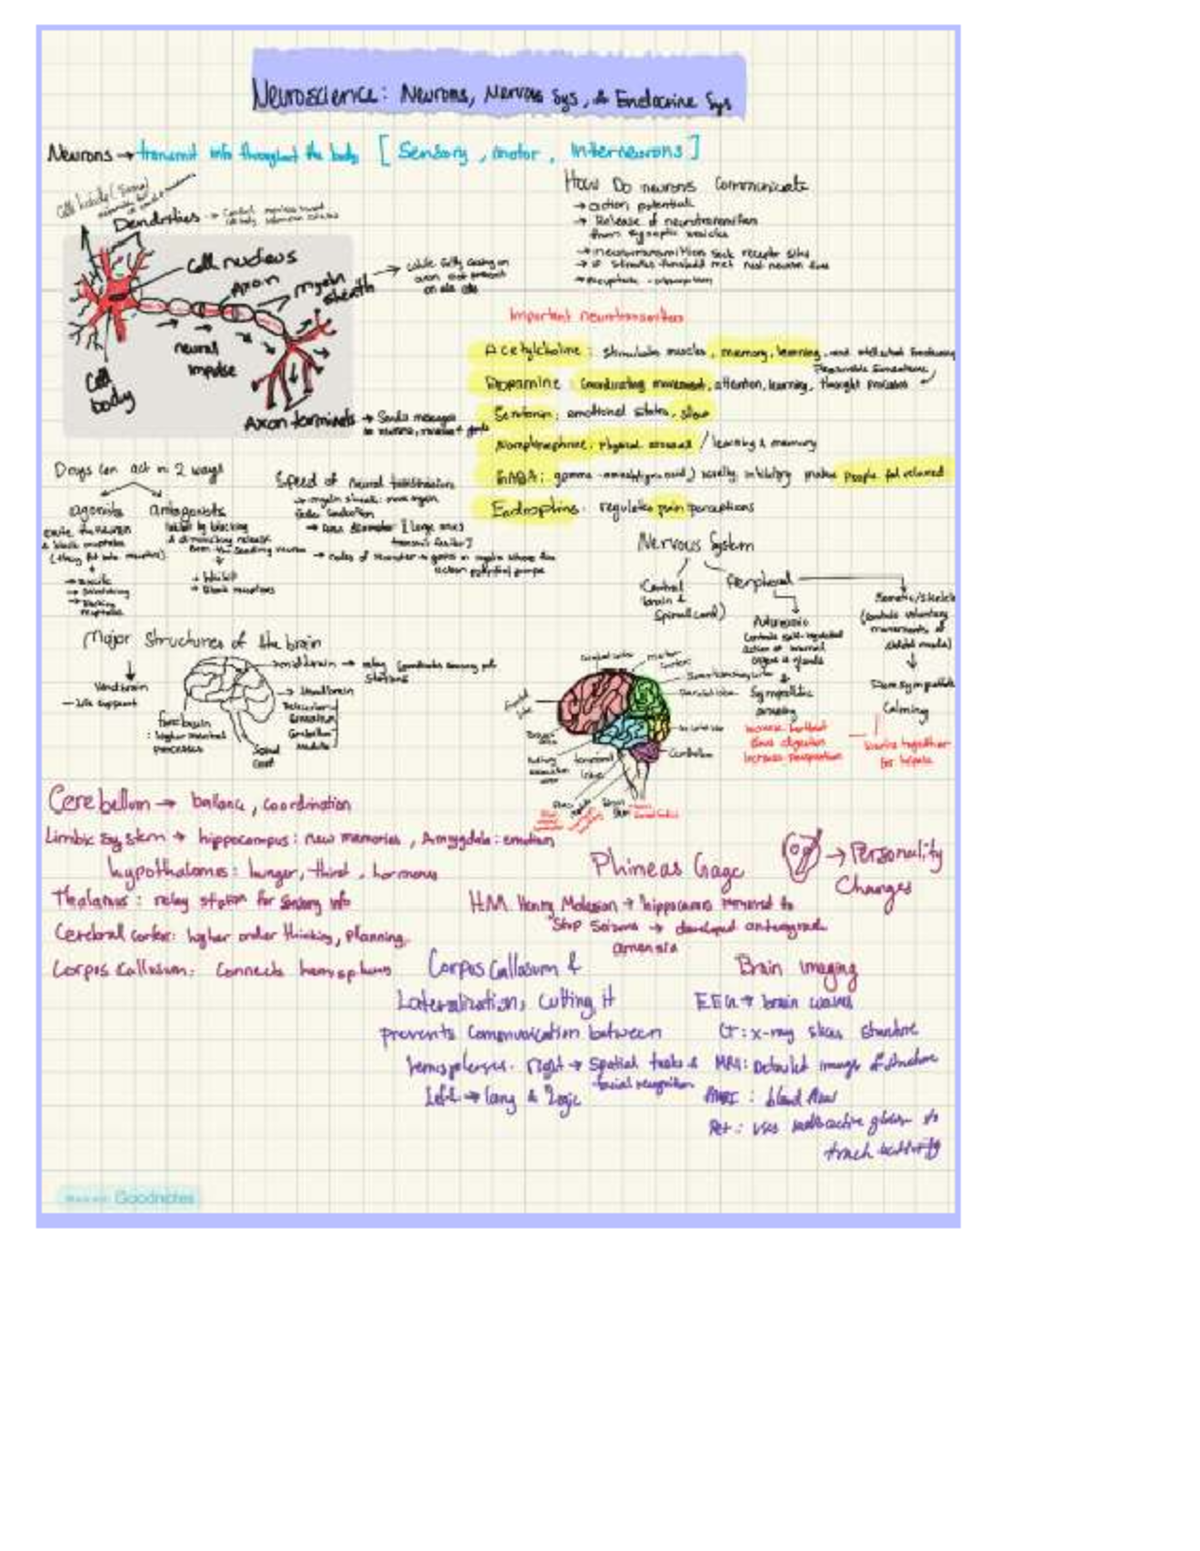 Neuroscience: Neurons, Nervous Sys, & Endocrine Sys
Neurons → transmit info throughout the body [Sensory, motor, Interneurons]
Cell body (Soma)
Dendrites →
Cell nucleus
Axon
myelin sheath →
white fatty casing on
axon not present
on all cells
neural
impulse
Cell
body
Axon terminals → Sends messages
How Do neurons Communicate
→ action potential
→ Release of neurotransmitters
from synaptic vesicles
→ neurotransmitters seek receptor sites
→ if threshold met next neuron fires
Important neurotransmitters
Acetylcholine: stimulates muscles, memory, learning, and intellectual functioning
Dopamine: Coordinating movement, attention, learning, thought processes
Pleasurable Sensations
Serotonin: emotional states, sleep
Norepinephrine: physical arousal / learning & memory
GABA: gamma-aminobutyric acid) usually inhibitory makes people feel relaxed
Endorphins: regulates pain perceptions
Drugs can act in 2 ways
agonists
excite the neuron
& block reuptake
→ excite
→ mimicking
→ Blocking
reuptake
antagonists
Inhibit by blocking
& diminishing release
from the sending neuron
→ Inhibit
→ Block receptors
Speed of neural transmission
→ myelin sheath: more myelin
faster conduction
→ axon diameter [Large ones
transmit faster]
Nervous System
Central
brain &
Spinal cord)
Peripheral
Autonomic
Controls self-regulated
action of internal
organs & glands
Sympathetic
arousing
increase heartbeat
slows digestion
increase perspiration
Somatic/Skeletal
(controls voluntary
movements of
skeletal muscle)
Parasympathetic
Calming
works together
Major Structures of the brain
Hindbrain
— Life support
midbrain → relay
stations
forebrain
: higher mental
processes
→ Hindbrain
Cerebellum
medulla
Spinal
Cord
Cerebral cortex
motor
cortex
Somatosensory cortex
Parietal lobe
occipital lobe
Cerebellum
frontal
lobe
temporal
lobe
Cerebellum → balance, coordination
Limbic System → hippocampus: new memories, Amygdala: emotion
hypothalamus: hunger, thirst, hormones
Thalamus: relay station for sensory info
Cerebral cortex: higher order thinking, planning
Corpus Callosum: Connects hemispheres
Phineas Gage
→ Personality
Changes
H.M. Henry Molaison → hippocampus removed to
Stop Seizures → developed anterograde
amnesia
Corpus Callosum &
Lateralization, cutting it
prevents Communication between
hemispheres. Right → Spatial tasks &
facial recognition
Left → lang & logic
Brain imaging
EEG → brain waves
CT: x-ray slices structure
MRI: Detailed image of structure
fMRI: blood flow
Pet: uses radioactive glucose to
track activity
Made with Goodnotes